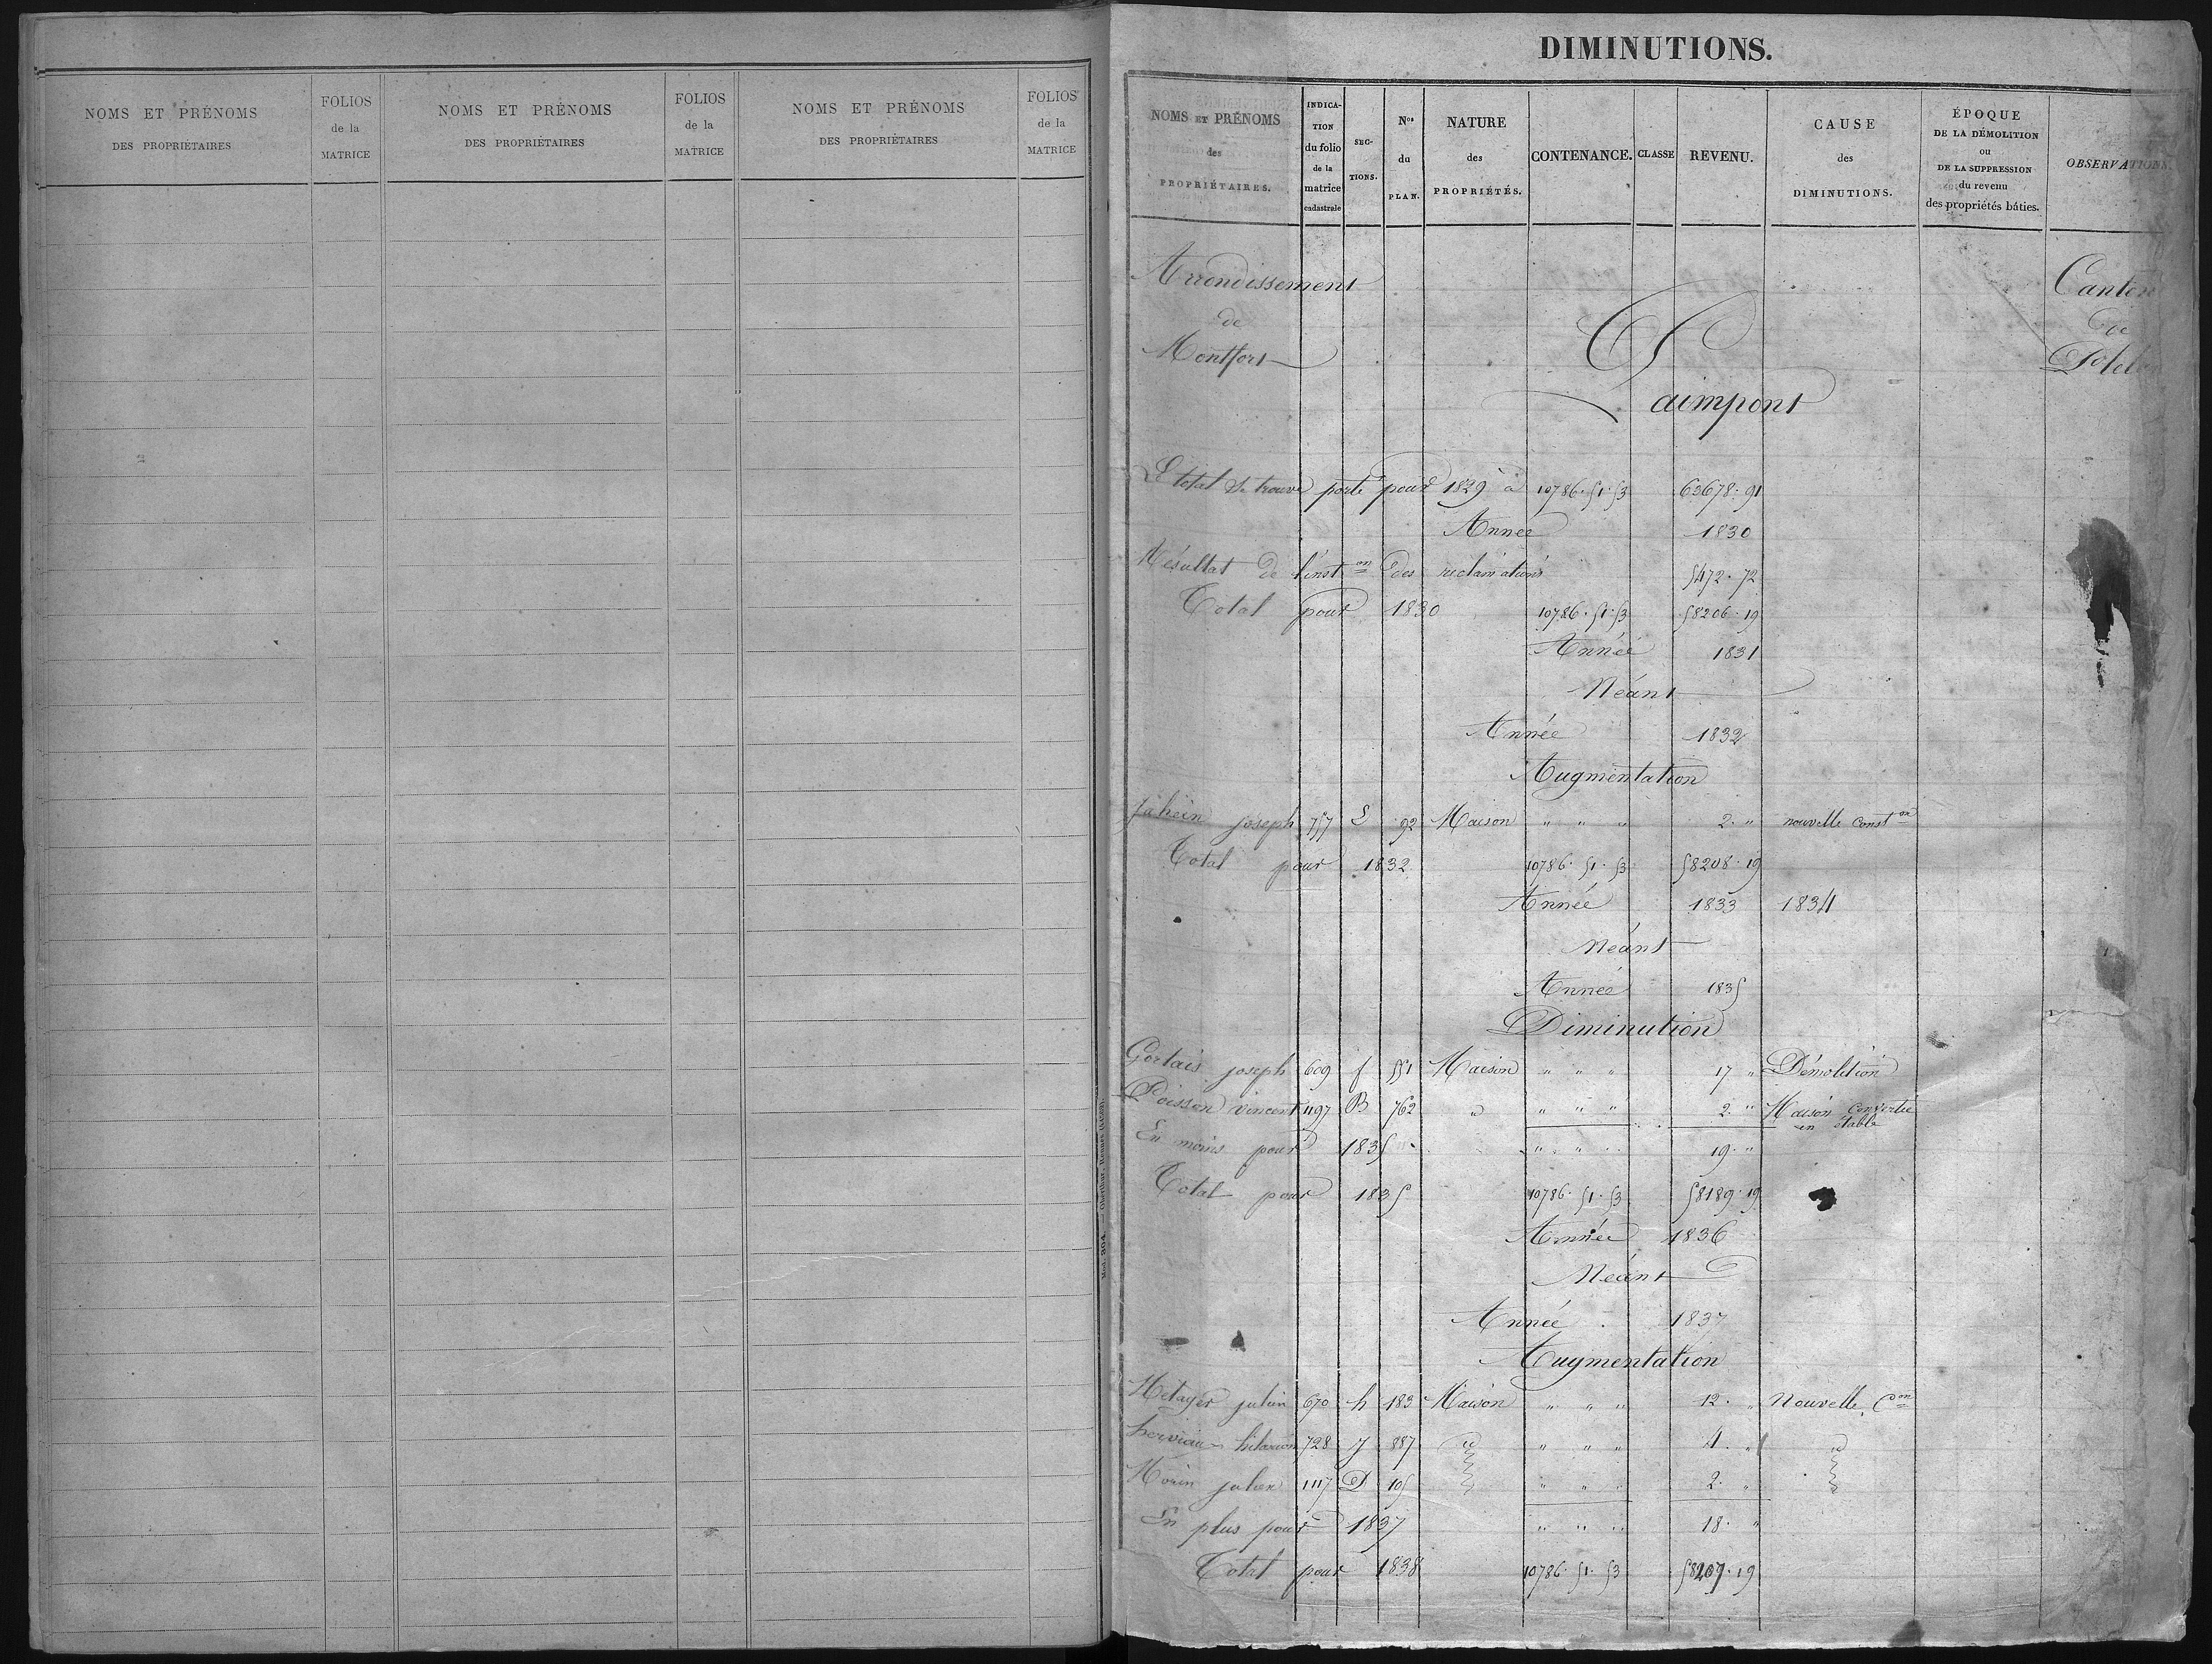 NOMS ET PRÉNOMS
DES PROPRIÉTAIRES
FOLIOS
de la
MATRICE
NOMS ET PRÉNOMS
DES PROPRIÉTAIRES
FOLIOS
de la
MATRICE
NOMS ET PRÉNOMS
DES PROPRIÉTAIRES
FOLIOS
de la
MATRICE
DIMINUTIONS.
NOMS ET PRÉNOMS
des
PROPRIÉTAIRES.
INDICA-
TION
du folio
de la
matrice
cadastrale
SEC-
TIONS.
Nos
du
PLAN.
NATURE
des
PROPRIÉTÉS.
CONTENANCE.
CLASSE
REVENU.
CAUSE
des
DIMINUTIONS.
ÉPOQUE
DE LA DÉMOLITION
ou
DE LA SUPPRESSION
du revenu
des propriétés bâties.
OBSERVATIONS.
Arrondissement
de
Montfort
Canton
de
Paimpont
Le total se trouve porté pour 1829 à 10786.51.53 63678.91
Année 1830
Résultat de l'inston des réclamations 5472.72
Total pour 1830 10786.51.53 58206.19
Année 1831
Néant
Année 1832
Augmentation
joseph 757 L 92 Maison " " " 2. " nouvelle conston
Total pour 1832 10786.51.53 58208.19
Année 1833 1834
Néant
Année 1835
Diminution
Gortais joseph 609 f 551 Maison " " " 17 " Démolition
Poisson vincent 1197 B 762 " " " " 2. " Maison convertie
en étable
En moins pour 1835 " " " 19. "
Total pour 1835 10786.51.53 58189.19
Année 1836
Néant
Année 1837
Augmentation
Métayer julien 670 h 183 Maison " " " 12. " Nouvelle Con
herviaux hilarion 728 J 887 id " " " 4. " id
Morin julien 1117 D 105 " " " 2. "
En plus pour 1837 " " " 18. "
Total pour 1838 10786.51.53 58207.19
Mod. 204. — Oberthur, Rennes